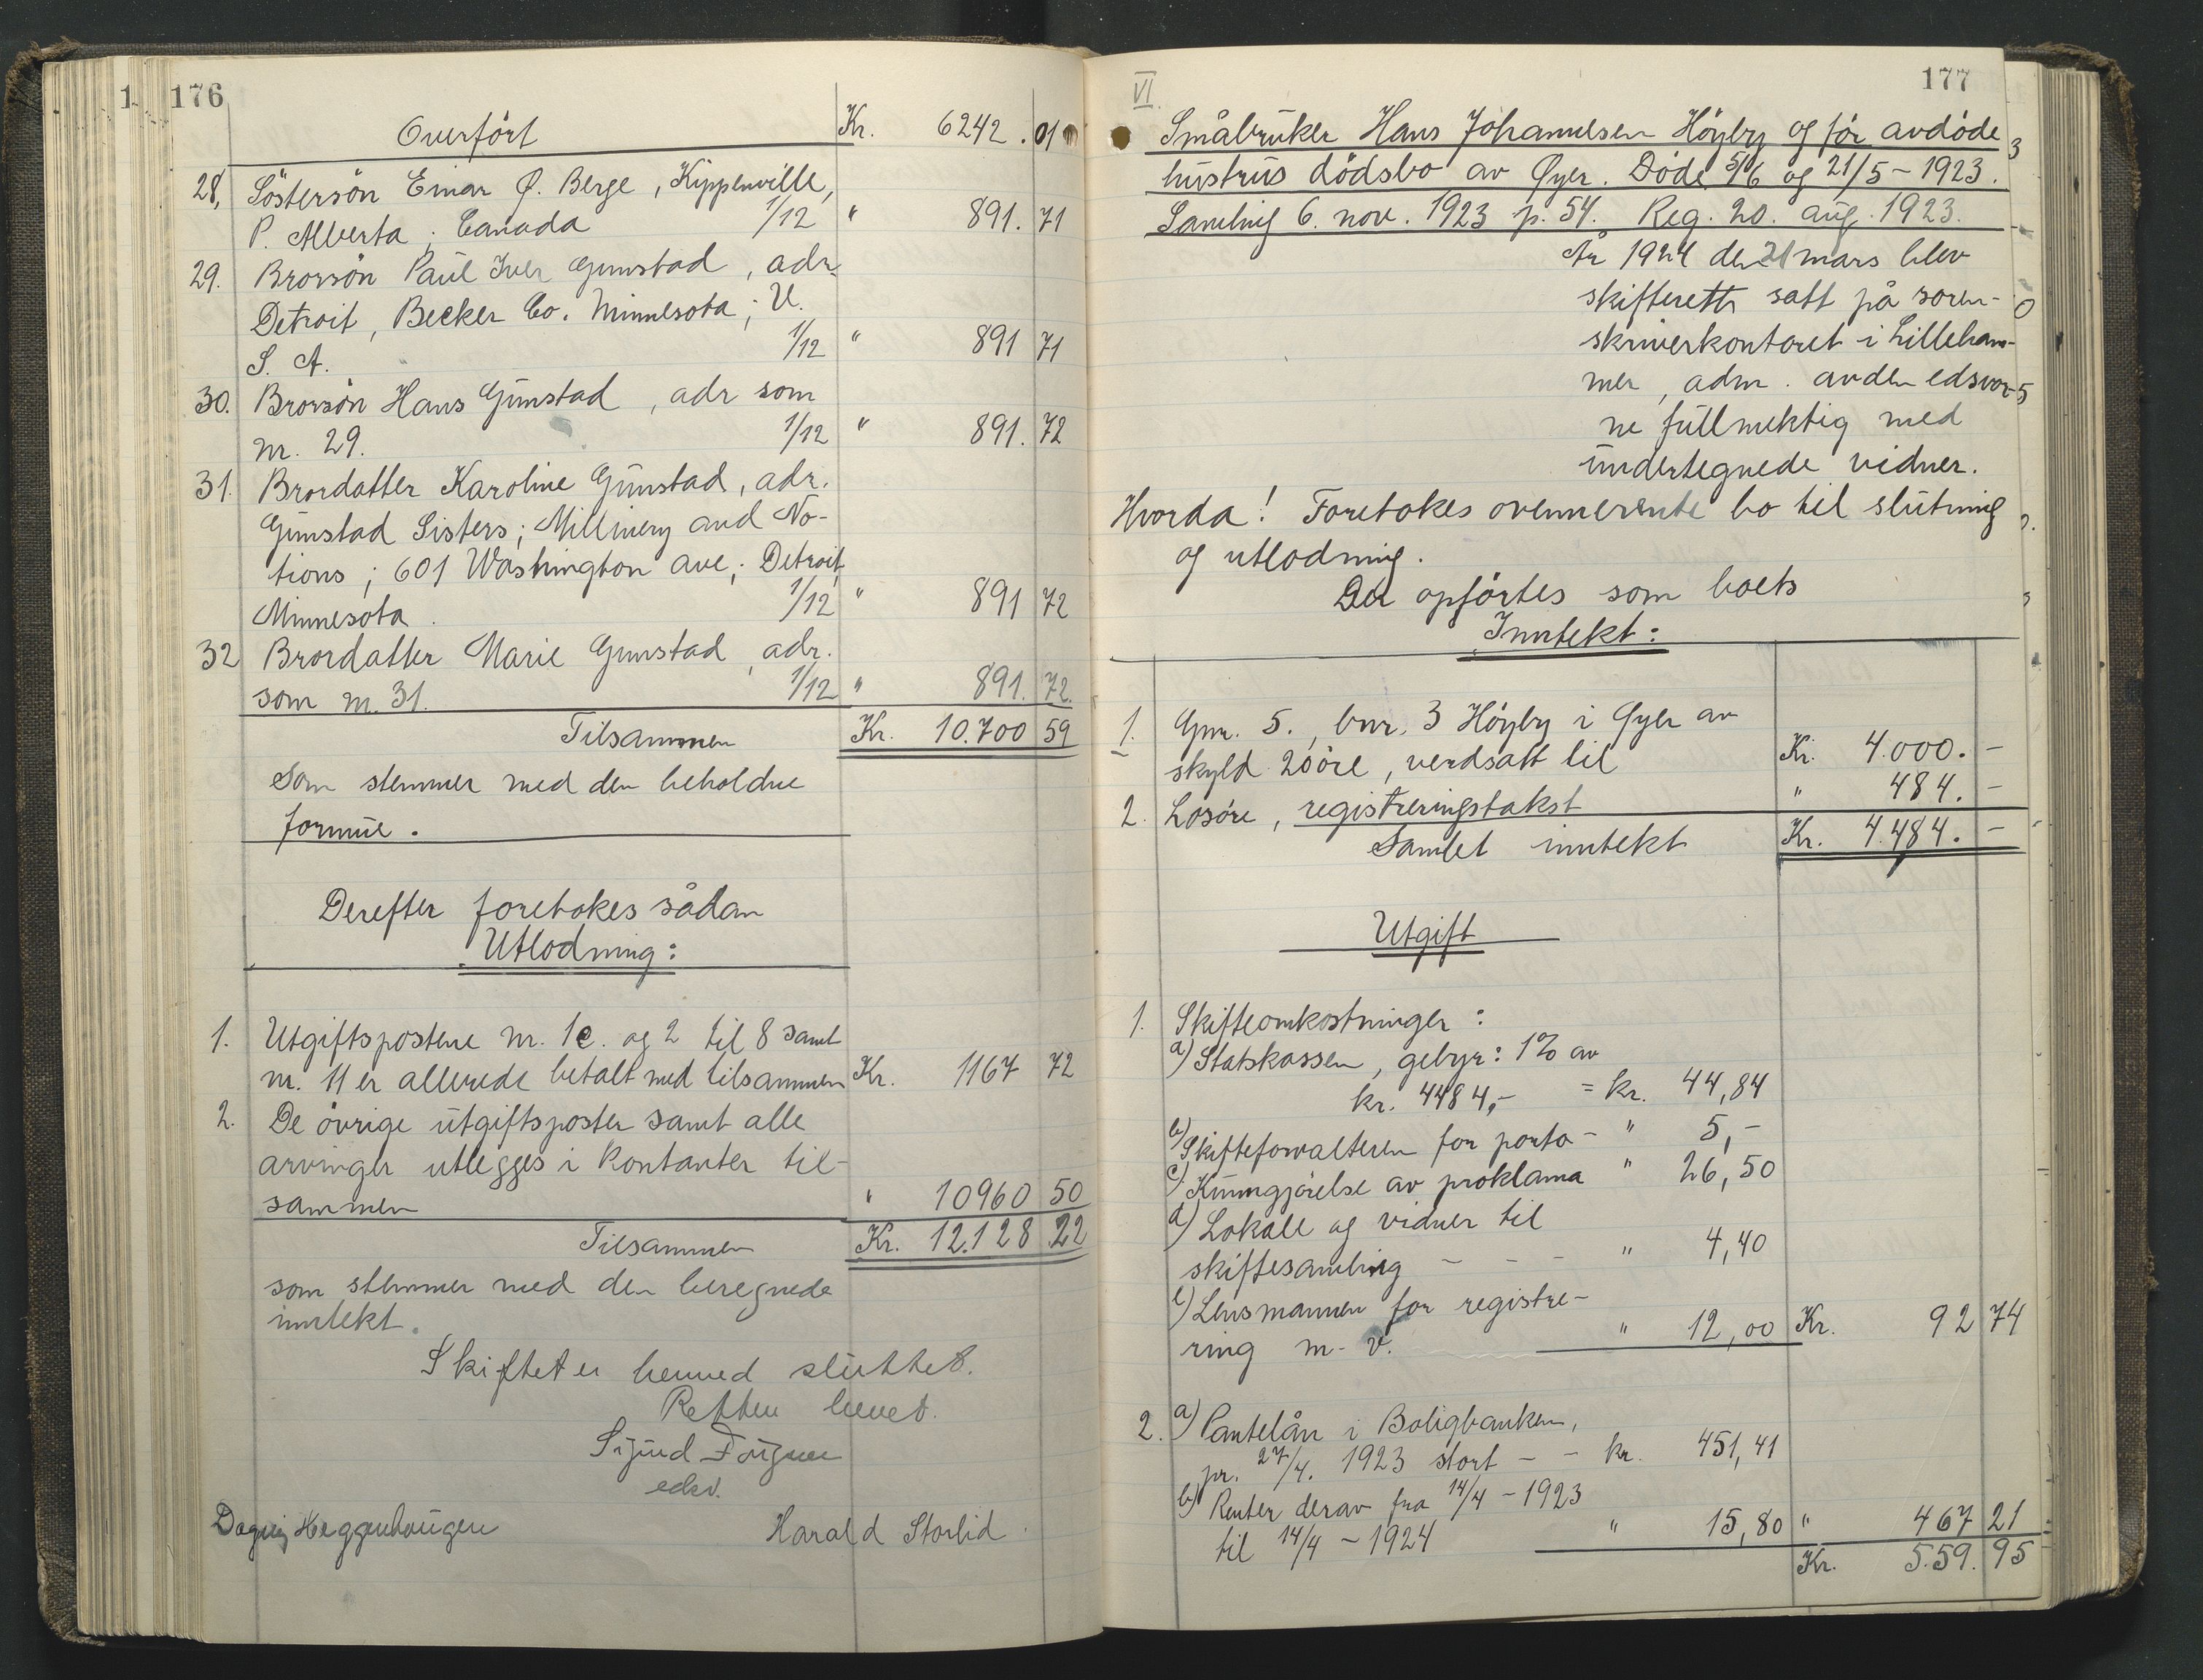 176
Overført Kr. 6242.01
28. Söstersön Einar Ø. Berge, Kippenville,
P. Alberta; Canada 1/12 " 891. 71
29. Brorsön Paul Iver Gunstad, adr.
Detroit, Becker Co. Minnesota; U.
S. A. 1/12 " 891 71
30. Brorsön Hans Gunstad, adr som
nr. 29. 1/12 " 891. 72
31. Brordatter Karoline Gunstad, adr.
Gunstad Sisters; Millinery and No-
tions; 601 Washington ave; Detroit
Minnesota. 1/12 " 891 72
32 Brordatter Marie Gunstad, adr.
som nr. 31. 1/12 " 891. 72.
Tilsammen Kr. 10.700 59
Som stemmer med den beholdne
formue.
Derefter foretokes sådan
Utlodning:
1. Utgiftspostene nr. 1c. og 2 til 8 samt
nr. 11 er allerede betalt med tilsammen Kr. 1167 72
2. De övrige utgiftsposter samt alle
arvinger utlegges i kontanter til-
sammen " 10960 50
Tilsammen Kr. 12.128 22
som stemmer med den beregnede
inntekt.
Skiftet er hermed sluttet.
Retten hevet.
Sigurd Fougner
edsv.
Dagny Heggenhougen Harald Storlid
VI. 177
Småbruker Hans Johannesen Höyby og før avdöde
hustrus dödsbo av Øyer. Döde 5/6 og 21/5 - 1923.
Samling 6. nov. 1923 p. 54. Reg. 20. aug. 1923.
År 1924 den 21 mars blev
skifterett satt på soren-
skriverkontoret i Lilleham-
mer, adm. av den edsvor-
ne fullmektig med
undertegnede vidner.
Hvorda! Foretokes ovennevnte bo til slutning
og utlodning.
Der opförtes som boets
Inntekt:
1. Gnr. 5., bnr. 3 Höyby i Øyer av
skyld 20 öre, verdsatt til Kr. 4.000. -
2. Lösöre, registreringstakst " 484. -
Samlet inntekt Kr. 4.484. -
Utgift
1. Skifteomkostninger:
a) Statskassen, gebyr: 1% av
kr. 4484,- = kr. 44,84
b) Skifteforvalteren for porto - " 5,-
c) Kunngjörelse av proklama " 26,50
d) Lokale og vidner til
skiftesamling - - - " 4,40
e) Lensmannen for registre-
ring m. v. " 12,00 Kr. 92 74
2. a) Pantelån i Boligbanken,
pr. 27/4. 1923 stort - - kr. 451,41
b) Renter derav fra 14/4 - 1923
til 14/4 - 1924 " 15,80 " 467 21
Kr. 559. 95